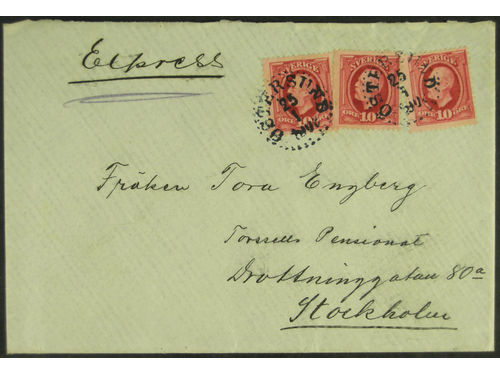 Express
SVERIGE
SVERIGE
ÖRE 10
ÖRE 10 ÖRE
10 ÖRE
ÖSTERSUND
25
7
25
7
Fröken Tora Engberg
Torssells Pensionat
Drottninggatan 80a
Stockholm